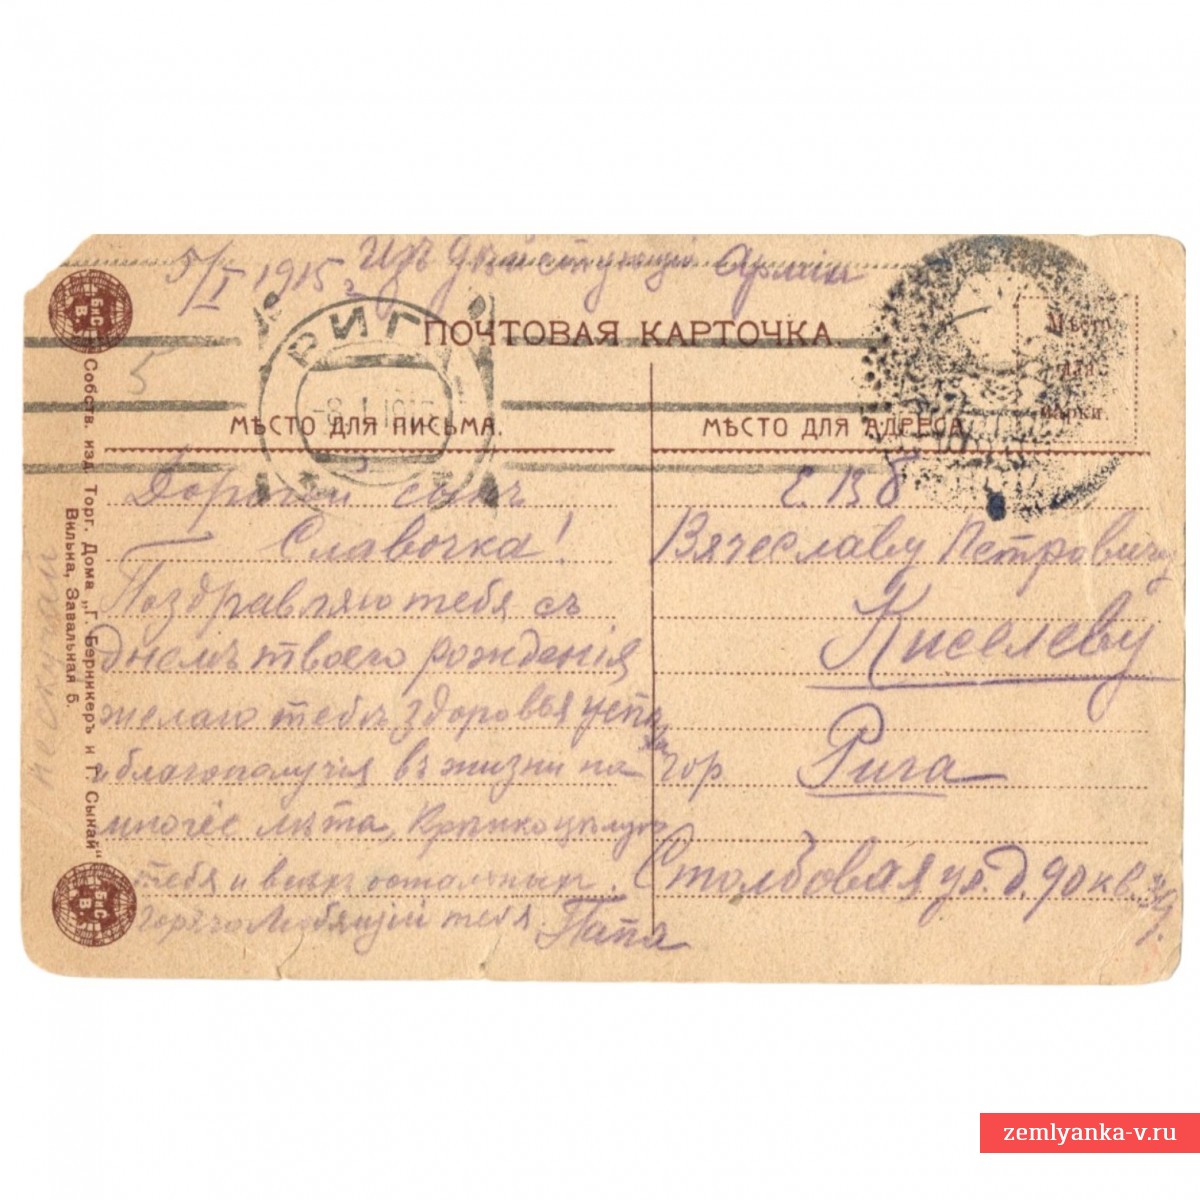 5/I 1915 г. Изъ Действующей Армии
ПОЧТОВАЯ КАРТОЧКА.
Мѣсто
для
марки.
РИГ
-8 1 1915
5
МѢСТО ДЛЯ ПИСЬМА.
Дорогой сынъ
Славочка!
Поздравляю тебя съ
днемъ твоего рожденія
желаю тебѣ здоровья успѣ
ха
и благополучія въ жизни на
многіе лѣта, Крѣпко цѣлую
тебя и всѣхъ остальныхъ.
Горячо Любящій тебя Папа
нескучай
МѢСТО ДЛЯ АДРЕСА
Е. В Б
Вячеславу Петровичу
Киселеву
гор Рига
Столбовая ул. д. 90 кв.
Собств. изд. Торг. Дома „Г. Берникеръ и Г. Сынай"
Вильна, Завальная 5.
БиС
В.
БиС
В.
zemlyanka-v.ru